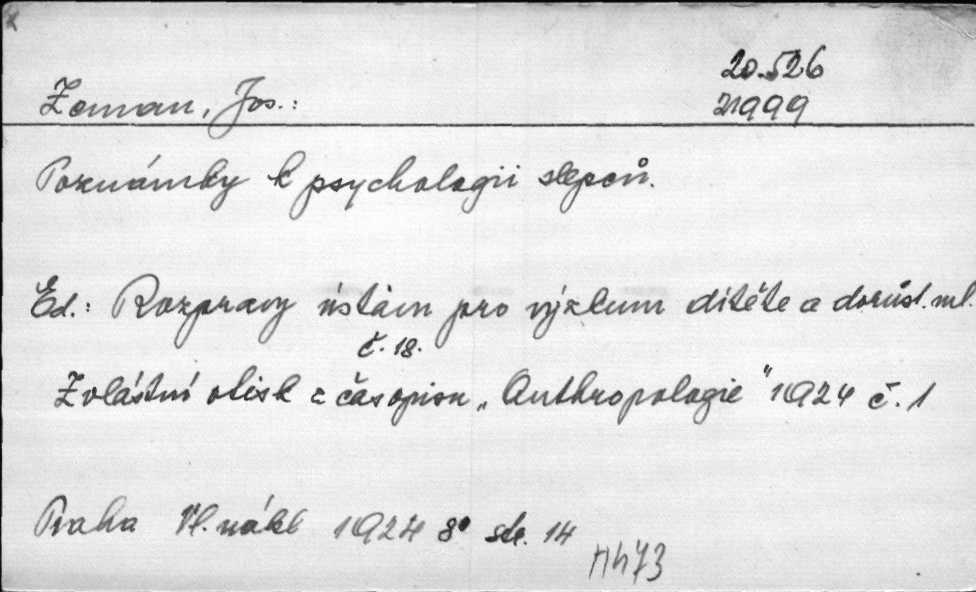 20.526
Zeman, Jos.:
21999
Poznámky k psychologii slepců.
Ed.: Rozpravy ústavu pro výzkum dítěte a dorůst. ml.
č. 18.
Zvláštní otisk z časopisu „Anthropologie" 1924 č. 1
Praha Vl. nákl 1924 8° str. 14